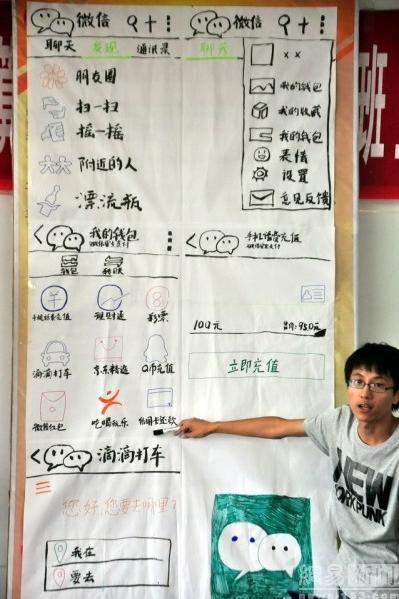 微信
聊天 发现 通讯录
朋友圈
扫一扫
摇一摇
附近的人
漂流瓶
微信
聊天
××
我的钱包
我的收藏
我的钱包
表情
设置
意见反馈
班
我的钱包
钱包 转账
手机话费充值 理财通 彩票
滴滴打车 京东精选 Q币充值
微信红包 吃喝玩乐 信用卡还款
手机话费充值
100元 售价:99.50元
立即充值
滴滴打车
您好,您要去哪里?
我在
要去
NEW
YORK PUNK
網易新闻